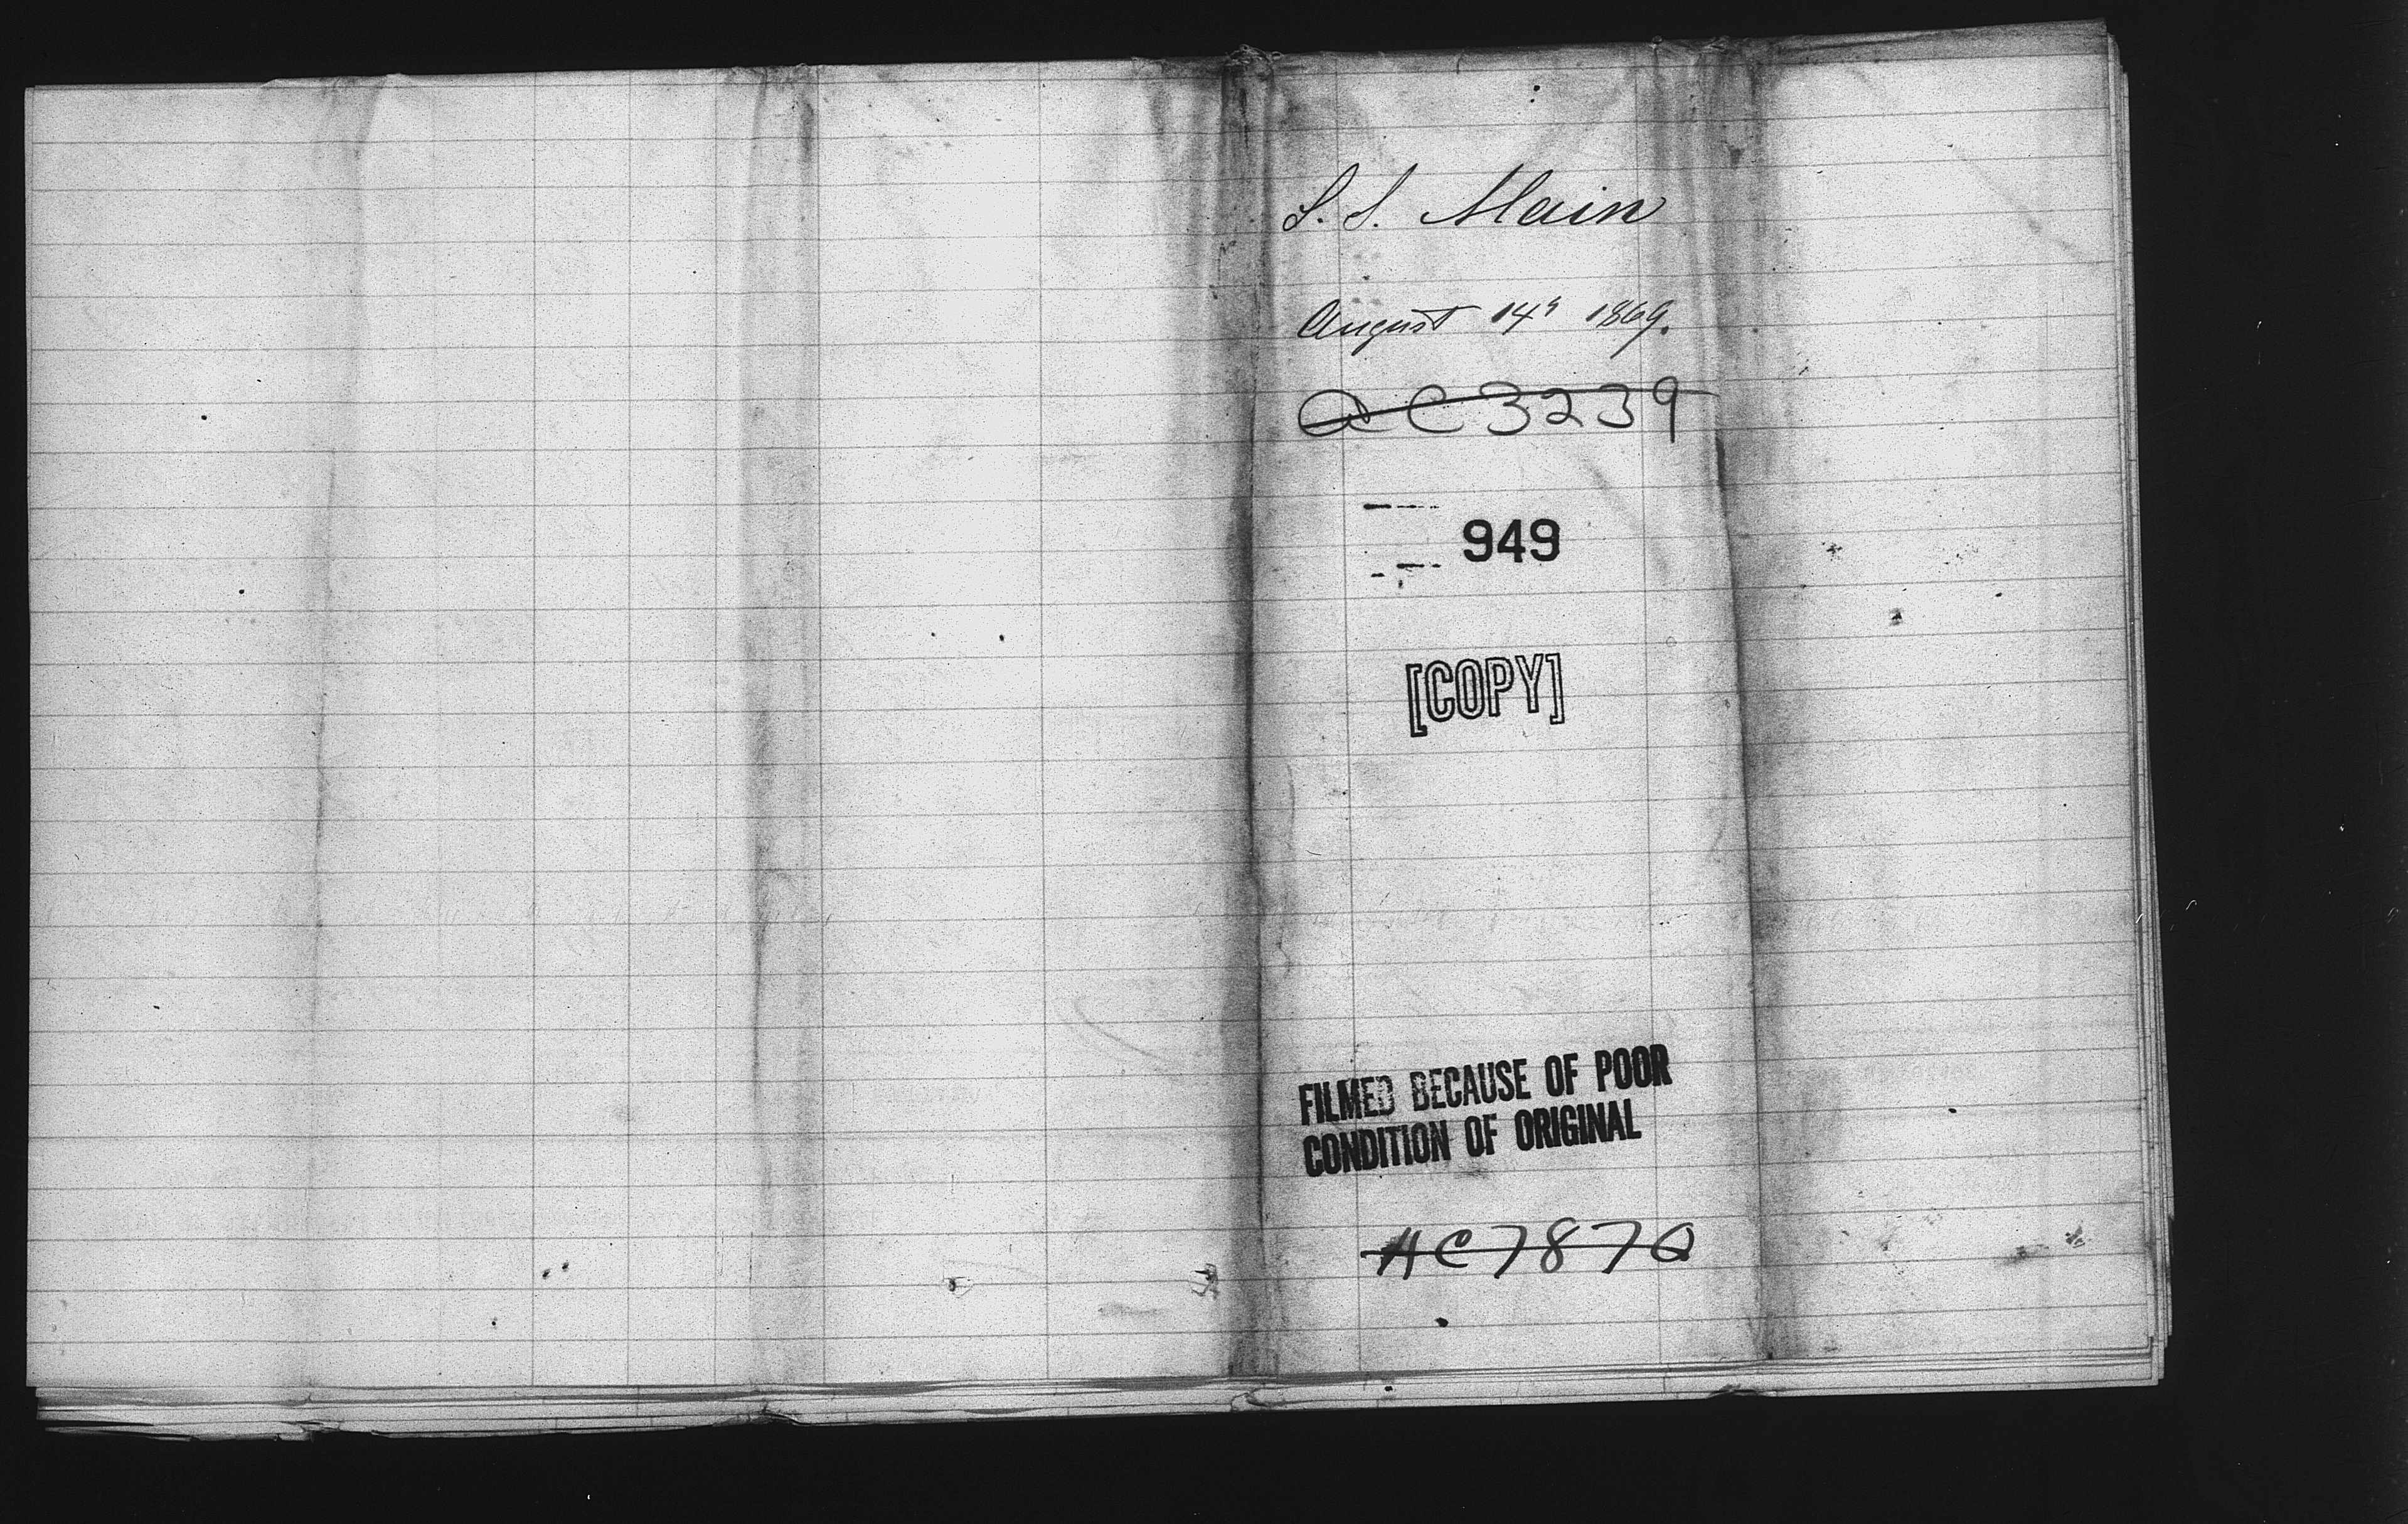 S. S. Main
August 14th 1869.
AC3239
949
[COPY]
FILMED BECAUSE OF POOR
CONDITION OF ORIGINAL
AC7870